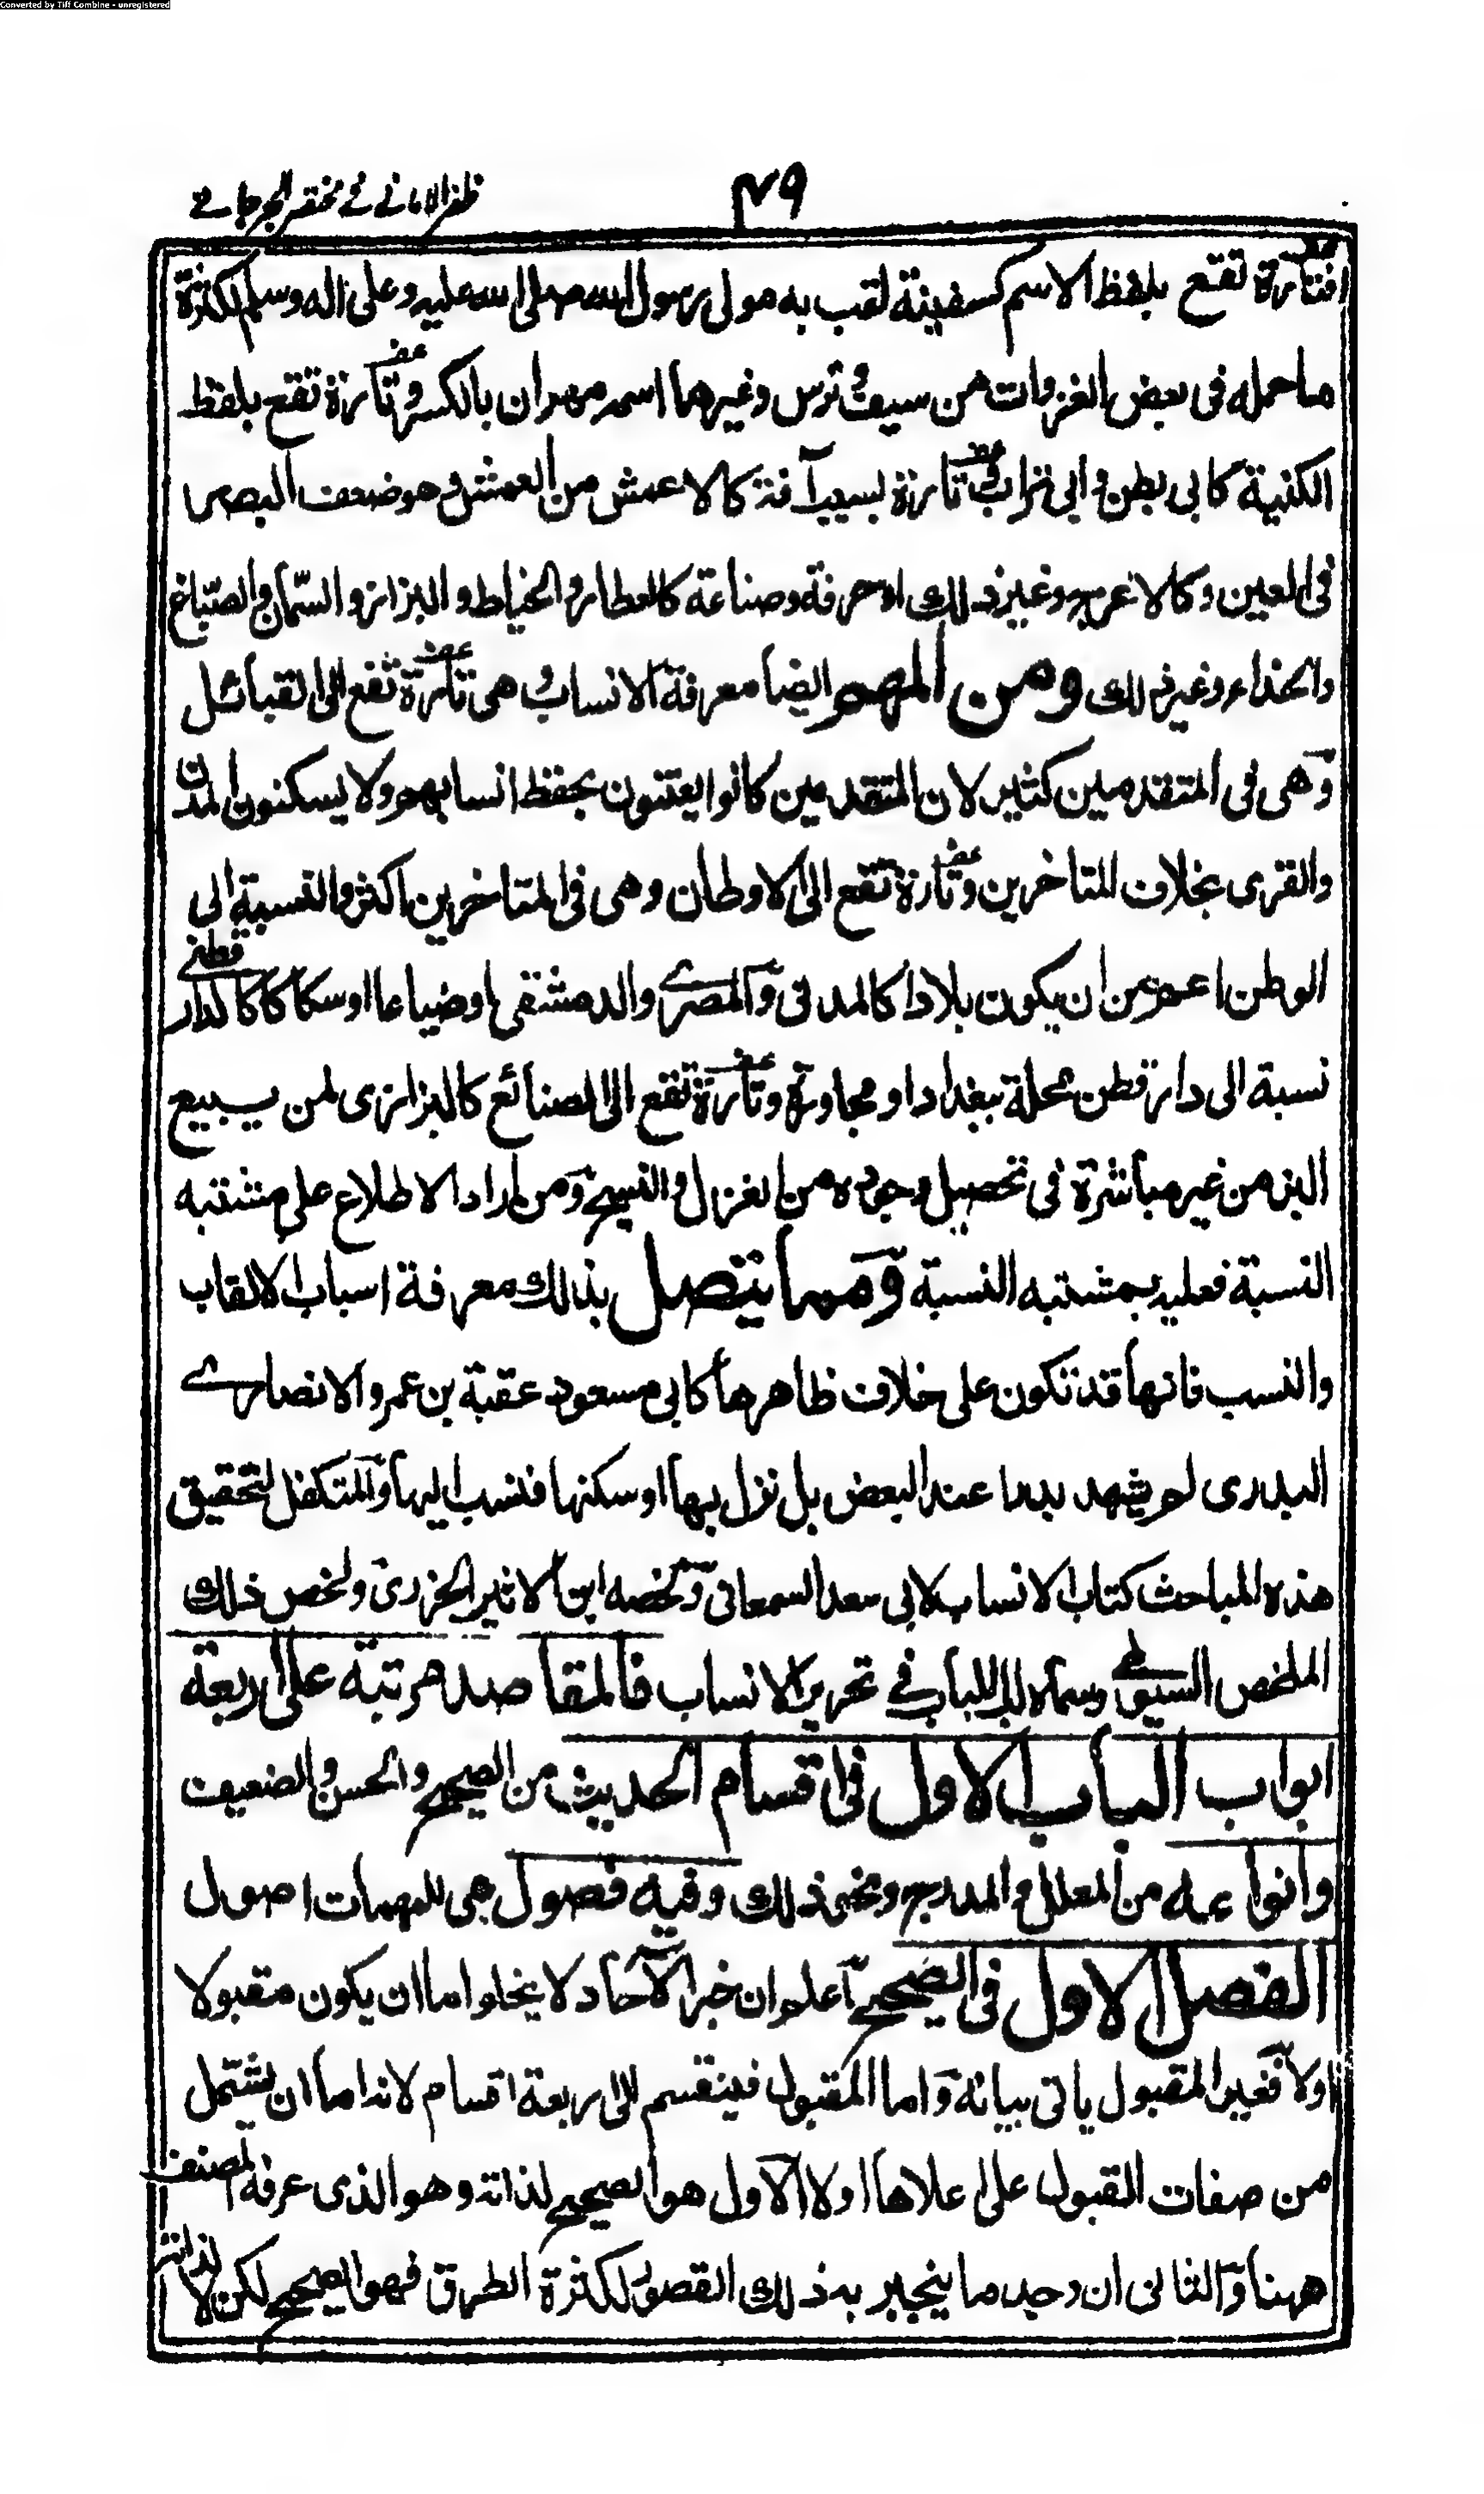 Converted by Tiff Combine - unregistered
ظفر الامانے فے مختصر الجرجانے
٤٩
فتارة تقع بلفظ الاسم كسفينة لقب به مولى رسول الله صلى الله عليه وعلى اله وسلم لكثرة
ما حمله فى بعض الغزوات من سيف وترس وغيرهما اسمه مهران بالكسر وتارة تقع بلفظ
الكنية كابى بطن وابى تراب وتارة بسبب آفة كالاعمش من العمش وهو ضعف البصر
فى العين وكالاعرج وغير ذلك او حرفة وصناعة كالعطار والخياط والبزاز والسمّان والصبّاغ
والحذاء وغير ذلك ومن المهم ايضا معرفة الانساب وهى تارة تقع الى القبائل
وهى فى المتقدمين كثير لان المتقدمين كانوا يعتنون بحفظ انسابهم ولا يسكنون المدن
والقرى بخلاف المتاخرين وتارة تقع الى الاوطان وهى فى المتاخرين اكثر والنسبة الى
الوطن اعم من ان يكون بلادا كالمدنى والمصرے والدمشقى او ضياعا او سككا كالدار قطنے
نسبة الى دار قطن محلة ببغداد او مجاورة وتارة تقع الى الصنائع كالبزازى لمن يبيع
البز من غير مباشرة فى تحصيل وجوده من الغزل والنسج ومن اراد الاطلاع على مشتبه
النسبة فعليه بمشتبه النسبة ومما يتصل بذلك معرفة اسباب الالقاب
والنسب فانها قد تكون على خلاف ظاهرها كابى مسعود عقبة بن عمرو الانصارے
البدرى لم يشهد بدرا عند البعض بل نزل بها او سكنها فنسب اليها والمتكفل لتحقيق
هذه المباحث كتاب الانساب لابى سعد السمعانى ولخصه ابن الاثير الجزرى ولخص ذلك
الملخص السيوطے وسماه لب اللباب فے تحرير الانساب فالمقاصد مرتبة على اربعة
ابواب الباب الاول فى اقسام الحديث من الصحيح والحسن والضعيف
وانواعه من المعلل والمدرج ونحو ذلك وفيه فصول هى للمهمات اصول
الفصل الاول فى الصحيح اعلم ان خبر الآحاد لا يخلو اما ان يكون مقبولا
اولا فغير المقبول ياتى بيانه واما المقبول فينقسم الى اربعة اقسام لانه اما ان يشتمل
من صفات القبول على اعلاها اولا الاول هو الصحيح لذاته وهو الذى عرفه المصنف
ههنا والثانى ان وجد ما ينجبر به ذلك القصور ككثرة الطرق فهو الصحيح لكن لا لذاته